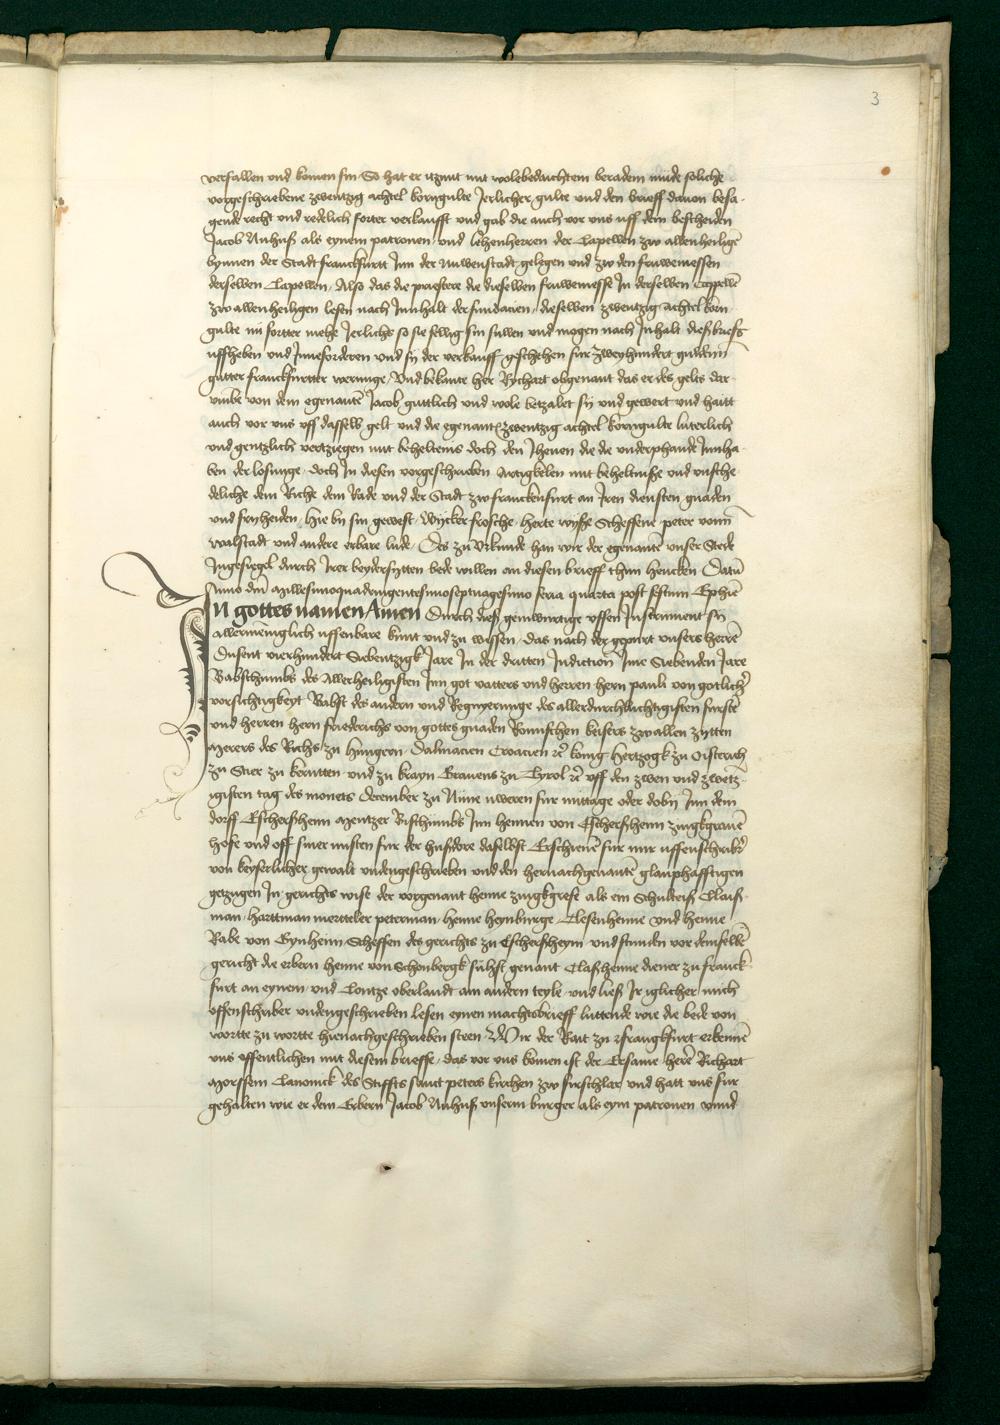 3
verfallen und komen sin So hat er itzunt mit wolebedachtem beradem mude soliche
vorgeschriebene zwentzig achtel korngulte Jerlicher gulte und den brieff dauon besa-
gende recht und redelich forter verkaufft und gab die auch vor uns uff dem bescheiden
Jacob Nuhuß als eynem patronen und lehenherren der Capellen zw allenheilige
bynnen der Stadt franckfurtt Inn der Nuwenstadt gelegen und zw den fruwemessen
derselben Capellen, Also das die priestere die dieselben fruwemesse In derselben Cappellē
zw allenheiligen lesen nach Innhalt der fundacien, dieselben zwentzig achtel korn
gulte nu fortter mehe Jerlichs so sie fellig sin sullen und mogen nach Inhalt dieß brieffs
uffheben und Inneforderen und sy der verkauff geschehen fur zweyhundert guldenn
gutter franckfurtter werunge, Und bekante her Rychart obgenant das er des gelts dar-
umbe von dem egenantē Jacob guttlich und wole betzalet sy und gewert und haitt
auch vor uns uff dasselb gelt und die egenantē zwentzig achtel korngulte luterlich
und gentzlich vertziegen mit beheltenis doch den Jhenen die die underphande Innha-
ben der losunge, doch In diesen vorgeschrieben Artigkelen mit beheltniße und unsche-
deliche dem Riche dem Rade und der Stadt zw franckenfurt an Iren diensten gnaden
und fryheiden, Hie by sin gewest, Wycker frosche, herte wysße Scheffene peter vonn
walstadt und andere erbare lude, Des zu Urkunde han wir der egenantē unser Stede
Ingesiegel durch Irer beydersytten bede willen an diesen brieff thun hencken Datū
Anno dm̄ Millesimoquadringentesimoseptuagesimo feria quarta post festum Ephiē
In gottes namen Amen Durch dieß geinwurtige uffen Instrument sy
allermeniglich uffenbare kunt und zu wissen, das nach der gepurt unsers herrē
Dusent vierhundert Siebentzigk Jare In der dritten Indiction Ime Siebenden Jare
Babsthumbs des Allerheiligisten Inn got vatters und herren hern pauli von gotlicher
vorsichtigkeyt Babst des andern und Regnyerunge des allerdurchluchtigisten furstē
und herren hern friederichs von gottes gnaden Romischen keisers zw allen zytten
Merers des Richs zu Hungern, Dalmacien Croacien ꝛc̄ konig hertzogk zu Oisterrich
zu Stier zu kernten und zu krayn Grauens zu Tyrol ꝛc̄ uff den zwen und zwetz-
igisten tag des monets December zu Nune uweren fur mittage oder doby Inn dem
dorff Eschersheim Mentzer Bisthumbs Inn hennen von Eschersheim zingkgrauē
hofe und uff siner misten fur der hußdore daselbst Erschienē fur mir uffenschribr̄
von keyserlicher gewalt undengeschrieben und den hernachgenantē glauphafftigen
getzugen In gerichts wise der vorgenant henne zingkgrefe als ein Schulteiß Claiß-
man, harttman mertteler peterman, henne heynburge, Clesenhenne und henne
Rabe von Gynheim Scheffen des gerichts zu Eschersheym und stunden vor demselbē
gericht die erbern henne von Schonbergk sulhst genant Claßhenne diener zu franck-
furt an eynem und Contze oberlandt am andern teyle und ließ Ir iglicher mich
offenschriber undengeschrieben lesen eynen machtsbrieff luttende wie die bede von
wortte zu wortte hienachgeschrieben steen, Wir der Rait zu frangkfurt erkennē
uns offentlichen mit diesem brieffe, das vor uns komen ist der Ersame herē Richart
Morssem Canonick des Stiffts sanct peters kirchen zw firschlar und hatt uns fur
gehalten wie er dem Erbern Jacob Nuhuß unserm burger als eym patronen unnd